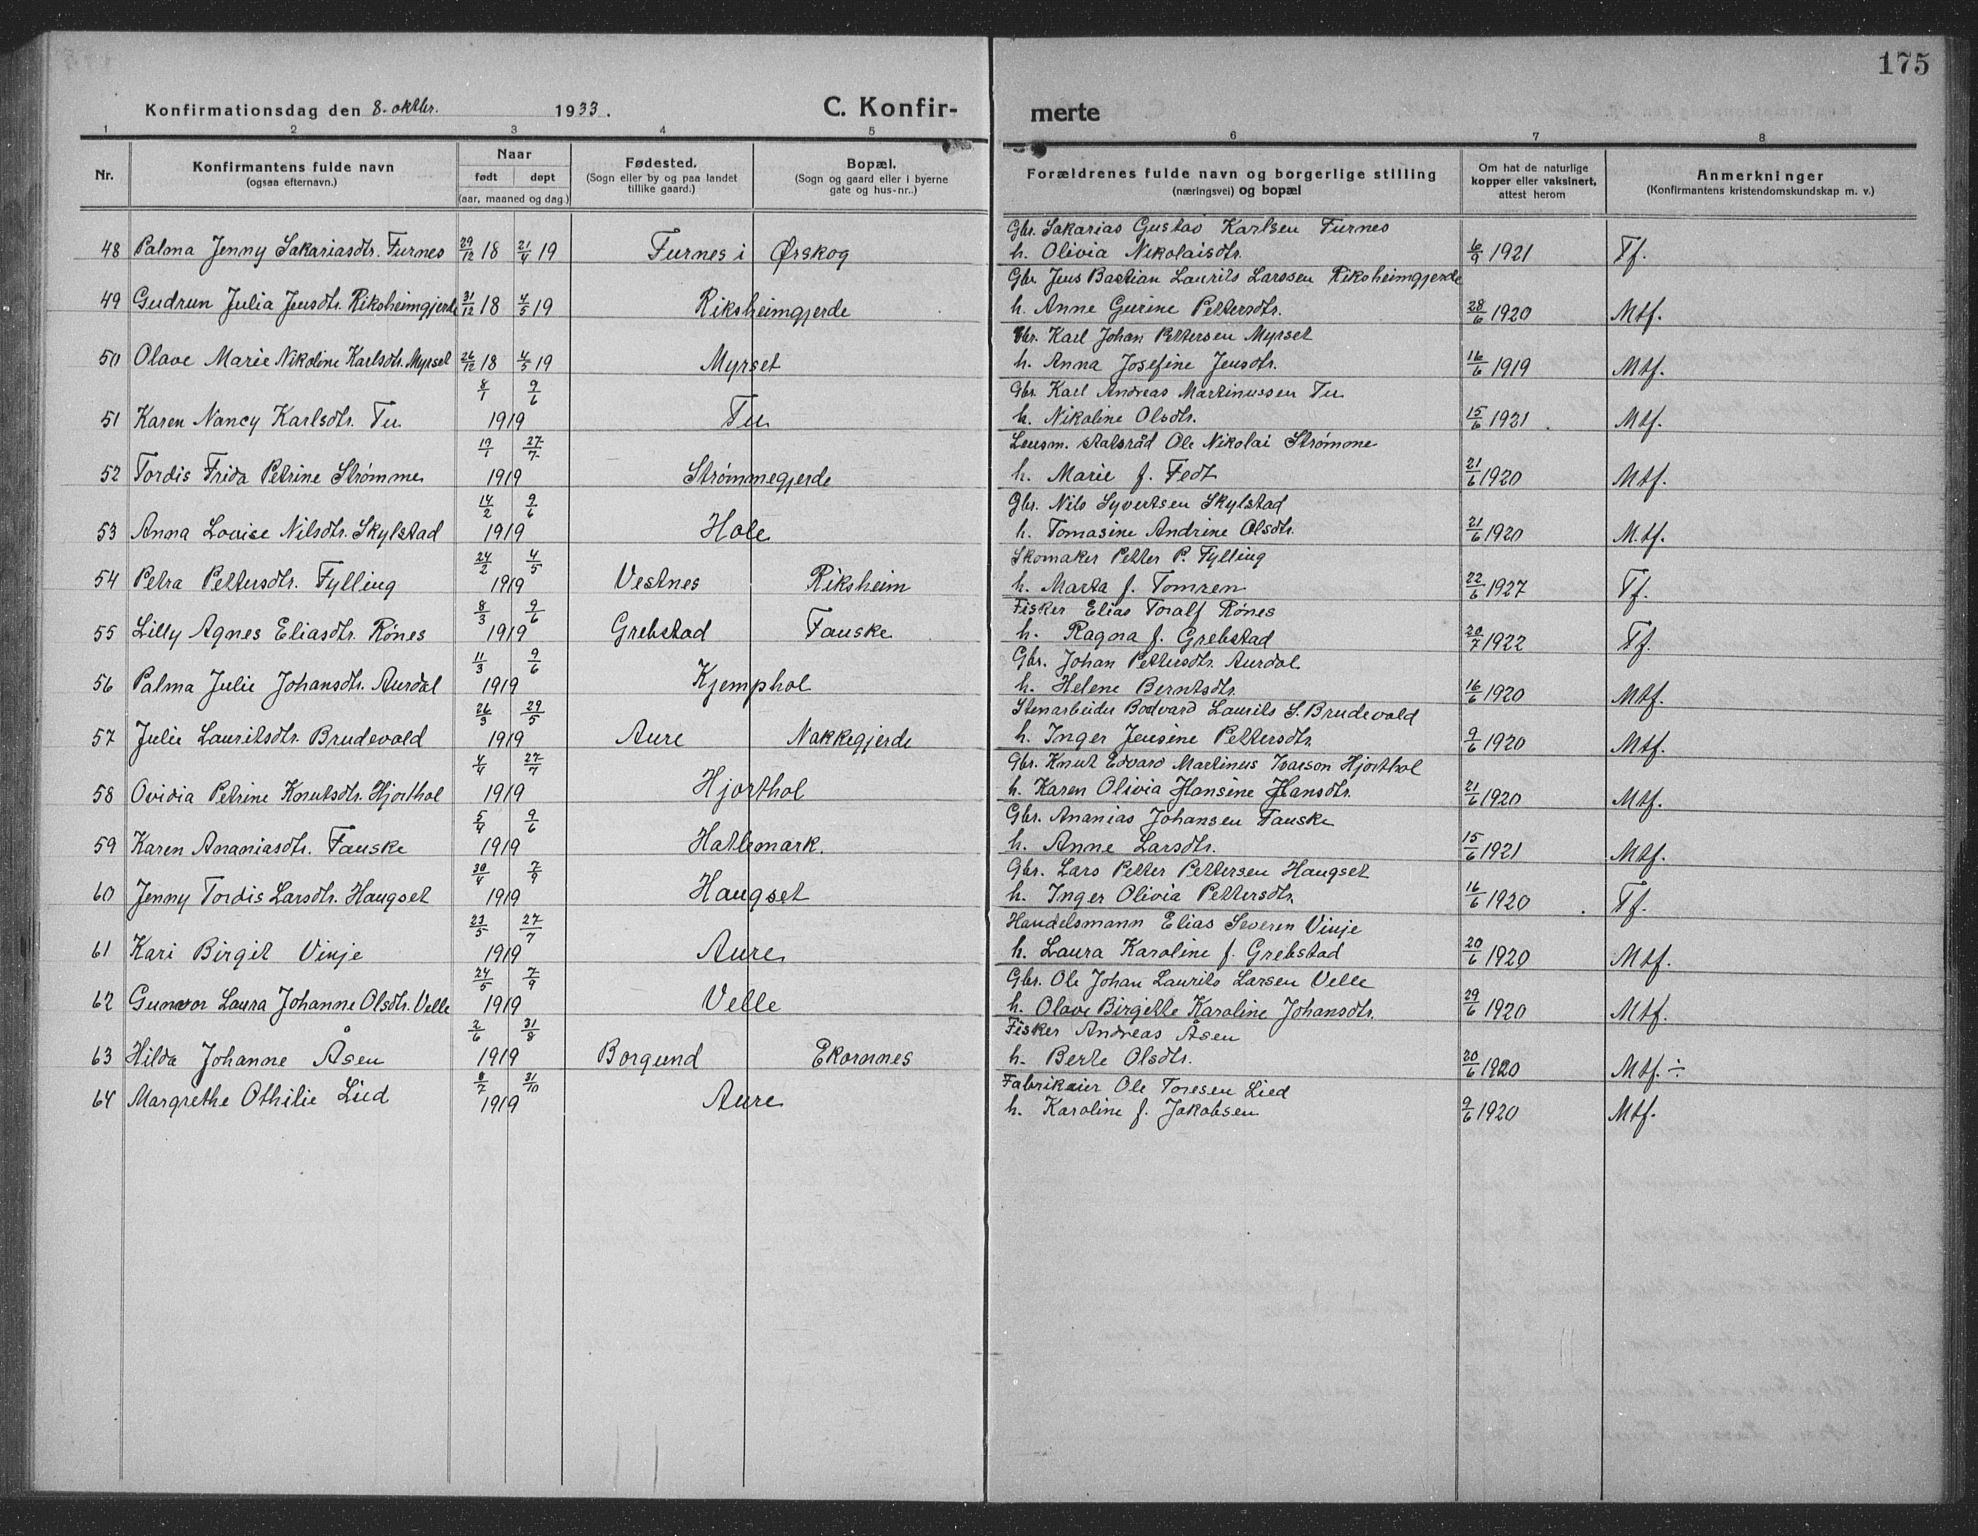 175
Konfirmationsdag den 8. oktbr. 1933. C. Konfir- merte
1 2 3 4 5 6 7 8
Nr. Konfirmantens fulde navn (ogsaa efternavn.) Naar født døpt (aar, maaned og dag.) Fødested. (Sogn eller by og paa landet tillike gaard.) Bopæl. (Sogn og gaard eller i byerne gate og hus-nr..) Forældrenes fulde navn og borgerlige stilling (næringsvei) og bopæl Om hat de naturlige kopper eller vaksinert, attest herom Anmerkninger (Konfirmantens kristendomskundskap m. v.)
Gbr. Sakarias Gustav Karlsen Furnes
48 Palma Jenny Sakariasdtr. Furnes 29/12 18 21/4 19 Furnes i Ørskog h. Olivia Nikolaisdtr. 6/9 1921 Tf.
Gbr. Jens Bastian Laurits Larssen Riksheimgjerde
49 Gudrun Julia Jensdtr. Riksheimgjerde 31/12 18 4/5 19 Riksheimgjerde h. Anne Gurine Pettersdtr. 28/6 1920 Mtf.
Gbr. Karl Johan Pettersen Myrset
50 Olave Marie Nikoline Karlsdtr. Myrset 26/12 18 4/5 19 Myrset h. Anna Josefine Jensdtr. 16/6 1919 Mtf.
8/1 9/6 Gbr. Karl Andreas Martinussen Tu
51 Karen Nancy Karlsdtr. Tu 1919 Tu h. Nikoline Olsdtr. 15/6 1921 Mtf.
19/1 27/7 Lensm. statsråd Ole Nikolai Strømme
52 Tordis Frida Petrine Strømme 1919 Strømmegjerde h. Marie f. Fedt 21/6 1920 Mtf.
14/2 9/6 Gbr. Nils Syvertsen Skylstad
53 Anna Louise Nilsdtr. Skylstad 1919 Hole h. Tomasine Andrine Olsdtr. 21/6 1920 M.tf.
24/2 4/5 Skomaker Petter P. Fylling
54 Petra Pettersdtr. Fylling 1919 Vestnes Riksheim h. Marta f. Tomren 22/6 1927 Tf.
8/3 9/6 Fisker Elias Toralf Rønes
55 Lilly Agnes Eliasdtr. Rønes 1919 Grebstad Fauske h. Ragna f. Grebstad 20/7 1922 Tf.
11/3 9/6 Gbr. Johan Pettersdtr. Aurdal
56 Palma Julie Johansdtr. Aurdal 1919 Kjemphol h. Helene Berntsdtr. 16/6 1920 Mtf.
26/3 29/5 Stenarbeider Bodvard Laurits S. Brudevold
57 Julie Lauritsdtr. Brudevold 1919 Aure Nakkegjerde h. Inger Jensine Pettersdtr. 9/6 1920 Mtf.
4/4 27/7 Gbr. Knut Edvard Martinus Ivarson Hjorthol
58 Ovidia Petrine Knutsdtr. Hjorthol 1919 Hjorthol h. Karen Olivia Hansine Hansdtr. 21/6 1920 Mtf.
5/4 9/6 Gbr. Ananias Johansen Fauske
59 Karen Ananiasdtr. Fauske 1919 Hatlemark. h. Anne Larsdtr. 15/6 1921 Mtf.
30/4 7/9 Gbr. Lars Petter Pettersen Haugset
60 Jenny Tordis Larsdtr. Haugset 1919 Haugset h. Inger Olivia Pettersdtr. 16/6 1920 Tf.
23/5 27/7 Handelsmann Elias Severen Vinje
61 Kari Birgit Vinje 1919 Aure h. Laura Karoline f. Grebstad 20/6 1920 Mtf.
24/5 7/9 Gbr. Ole Johan Laurits Larsen Velle
62 Gunvor Laura Johanne Olsdtr. Velle 1919 Velle h. Olave Birgitte Karoline Johansdtr. 29/6 1920 Mtf.
2/6 31/8 Fisker Andreas Åsen
63 Hilda Johanne Åsen 1919 Borgund Ekornnes h. Berte Olsdtr. 20/6 1920 Mtf. ÷
8/7 31/10 Fabrikeier Ole Toresen Lied
64 Margrethe Othilie Lied 1919 Aure h. Karoline f. Jakobsen 9/6 1920 Mtf.